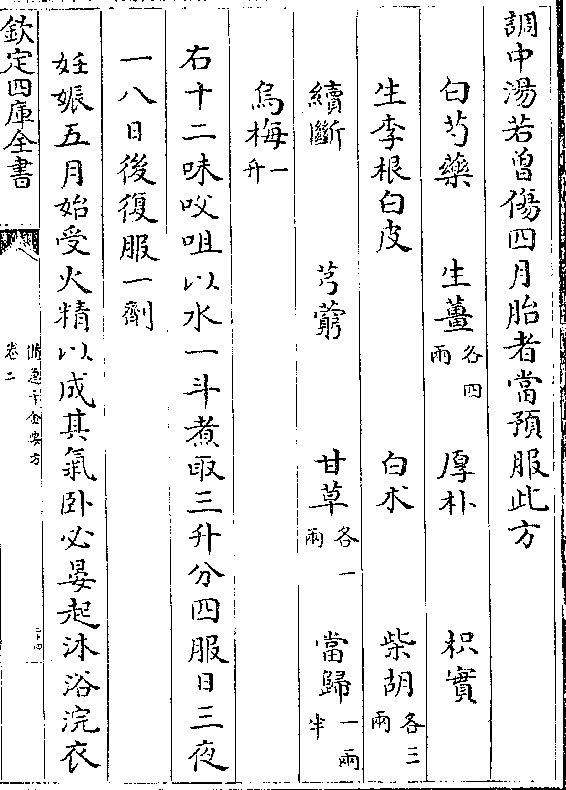 調中湯若曾傷四月胎者當預服此方
白芍藥 生薑各四兩 厚朴 枳實
生李根白皮 白朮 柴胡各三兩
續斷 芎藭 甘草各一兩 當歸一兩半
烏梅一升
右十二味㕮咀以水一斗煮取三升分四服日三夜
一八日後復服一劑
妊娠五月始受火精以成其氣卧必晏起沐浴浣衣
欽定四庫全書
備急千金要方
卷二
二十四